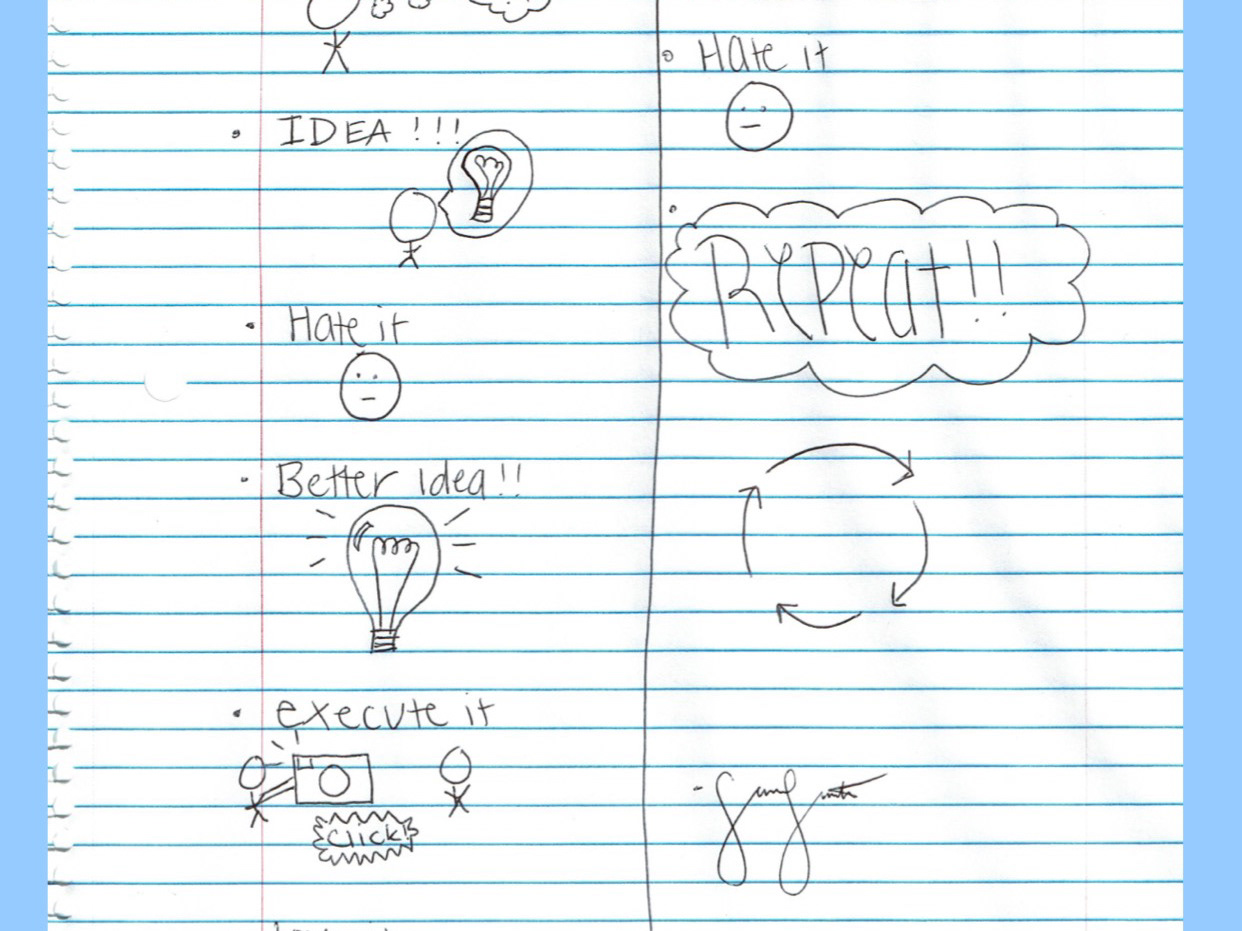 IDEA !!!
Hate it
Better idea!!
execute it
Click!
Hate it
Repeat!!